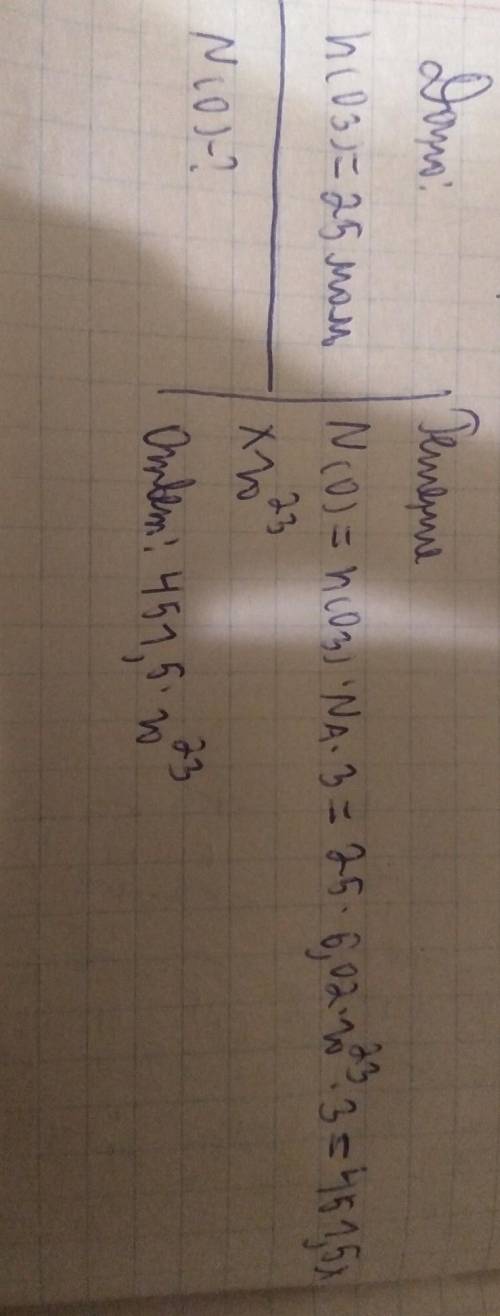 Дано:
n(O3) = 25 моль
N(O)-?
Решение
N(O) = n(O3) · NA · 3 = 25 · 6,02 · 10^23 · 3 = 451,5 x
x 10^23
Ответ: 451,5 · 10^23